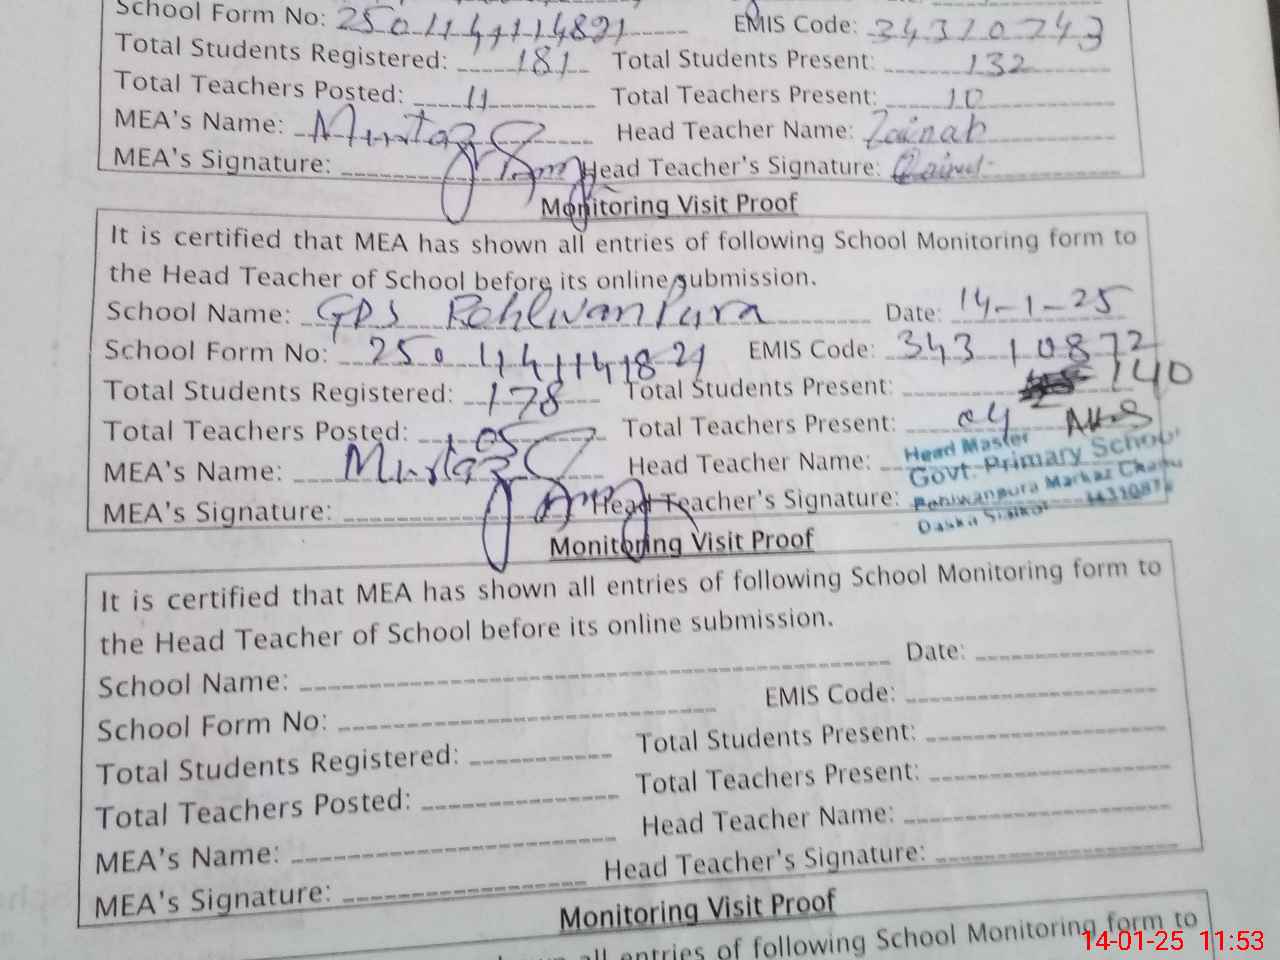 School Form No: 2501141114821 EMIS Code: 34310743
Total Students Registered: 181 Total Students Present: 132
Total Teachers Posted: 11 Total Teachers Present: 10
MEA's Name: Mumtaz Head Teacher Name: Zainab
MEA's Signature: Head Teacher's Signature: Zainab
Monitoring Visit Proof
It is certified that MEA has shown all entries of following School Monitoring form to
the Head Teacher of School before its online submission.
School Name: GPS Rohlwanpura Date: 14-1-25
School Form No: EMIS Code: 34310872
Total Students Registered: 178 Total Students Present: 140
Total Teachers Posted: 05 Total Teachers Present: 04
MEA's Name: Mumtaz Head Teacher Name: Head Master
Govt. Primary School
MEA's Signature: Head Teacher's Signature:
Monitoring Visit Proof
It is certified that MEA has shown all entries of following School Monitoring form to
the Head Teacher of School before its online submission.
School Name: Date:
School Form No: EMIS Code:
Total Students Registered: Total Students Present:
Total Teachers Posted: Total Teachers Present:
MEA's Name: Head Teacher Name:
MEA's Signature: Head Teacher's Signature:
Monitoring Visit Proof
all entries of following School Monitoring form to
14-01-25 11:53